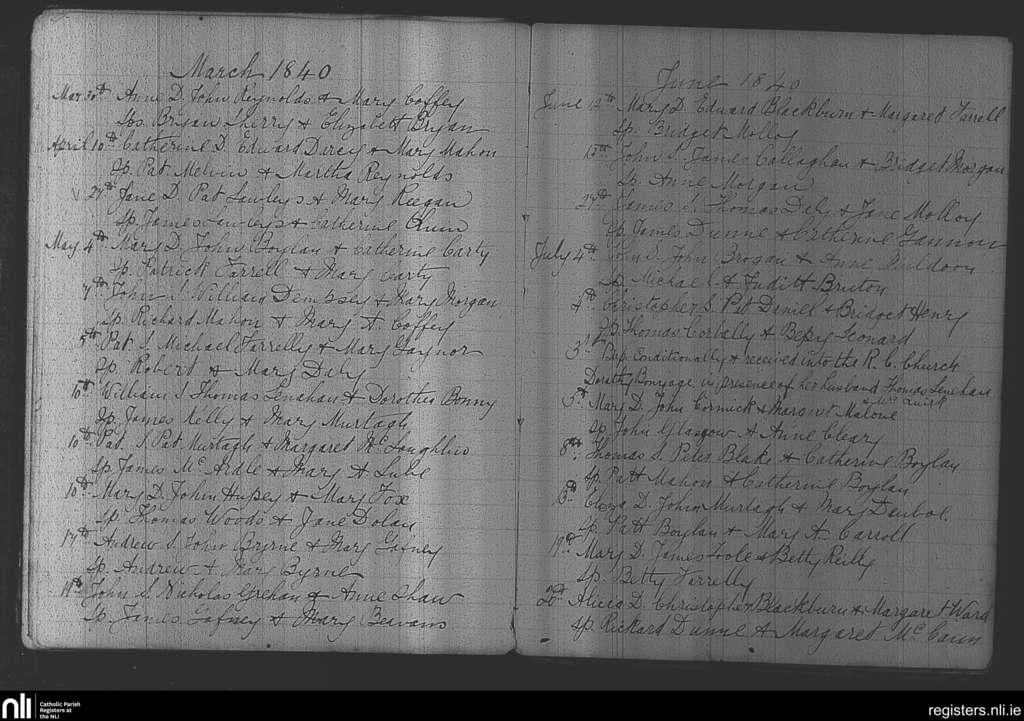 March 1840
Mar 30th Anne D. John Reynolds & Mary Coffey
Sps. Bryan Sherry & Elizabeth Bryan
April 10th Catherine D. Edward Darcy & Mary Mahon
Sp. Pat Melvin & Martha Reynolds
Jane D. Pat Lawleys & Mary Keegan
Sp. James Lawleys & Catherine Chum
May 4th Mary D. John Boylan & Catherine Carty
Sp. Patrick Farrell & Mary Carty
7th John S. William Dempsey & Mary Morgan
Sp. Richard Mahon & Mary A. Coffey
Pat S. Michael Farrelly & Mary Gaynor
Sp. Robert & Mary Daly
10th William S. Thomas Lenahan & Dorothea Bonny
Sp. James Kelly & Mary Murtagh
10th Pat S. Pat Murtagh & Margaret McLoughlin
Sp. James McArdle & Mary A
10th Mary D. John Hussey & Mary Fox
Sp. Thomas Woods & Jane Dolan
17th Andrew S. John Byrne & Mary Gafney
Sp. Andrew & Mary Byrne
John S. Nicholas Grehan & Anne Shaw
Sp. James Gafney & Mary Bewans
June 1840
June 12th Mary D. Edward Blackburn & Margaret Farrell
Sp. Bridget Molloy
13th John S. James Callaghan & Bridget Morgan
Sp. Anne Morgan
James S. Thomas Daly & Jane Molloy
Sp. James Dunne & Catherine Gannon
July 4th John S. John Brogan & Anne Muldoon
Sp. Michael & Judith Bruton
4th Christopher S. Pat Daniel & Bridget Henry
Sp. Thomas Corbally & Bepy Leonard
Bap. Conditionally & received into the R. C. Church
Dorothy in presence of her husband Thomas Lenehan
& Mrs Quirk
5th Mary D. John Cormick & Margret Malone
Sp. John Glasgow & Anne Cleary
8th Thomas S. Peter Blake & Catherine Boylan
Sp. Patt Mahon & Catherine Boylan
Eliza D. John Murtagh & Mary
Sp. Patt Boylan & Mary A. Carroll
19th Mary D. James Toole & Betty Reilly
Sp. Betty Farrelly
26th Alicia D. Christopher Blackburn & Margaret Ward
Sp. Richard Dunne & Margaret McCann
nli
Catholic Parish
Registers at
the NLI
registers.nli.ie